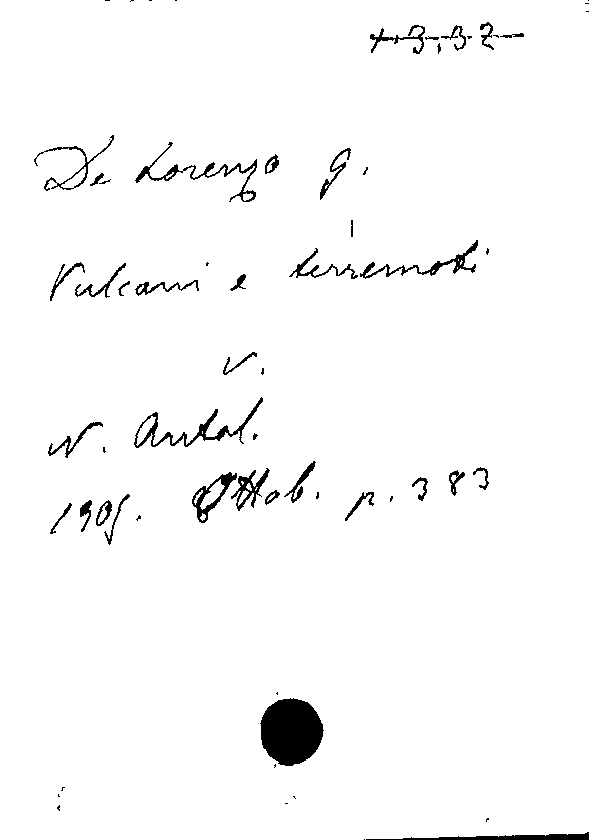 De Lorenzo G.
Vulcani e terremoti
v.
N. Antol.
1905. Ottob. p. 383